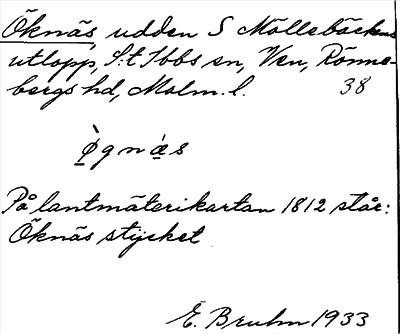 Öknäs, udden S Möllebäckens
utlopp, S:t Ibbs sn, Ven, Rönne-
bergs hd, Malm. l. 38
ø̀gnæ̀s
På lantmäterikartan 1812 står:
Öknäs stycket
E. Bruhn 1933